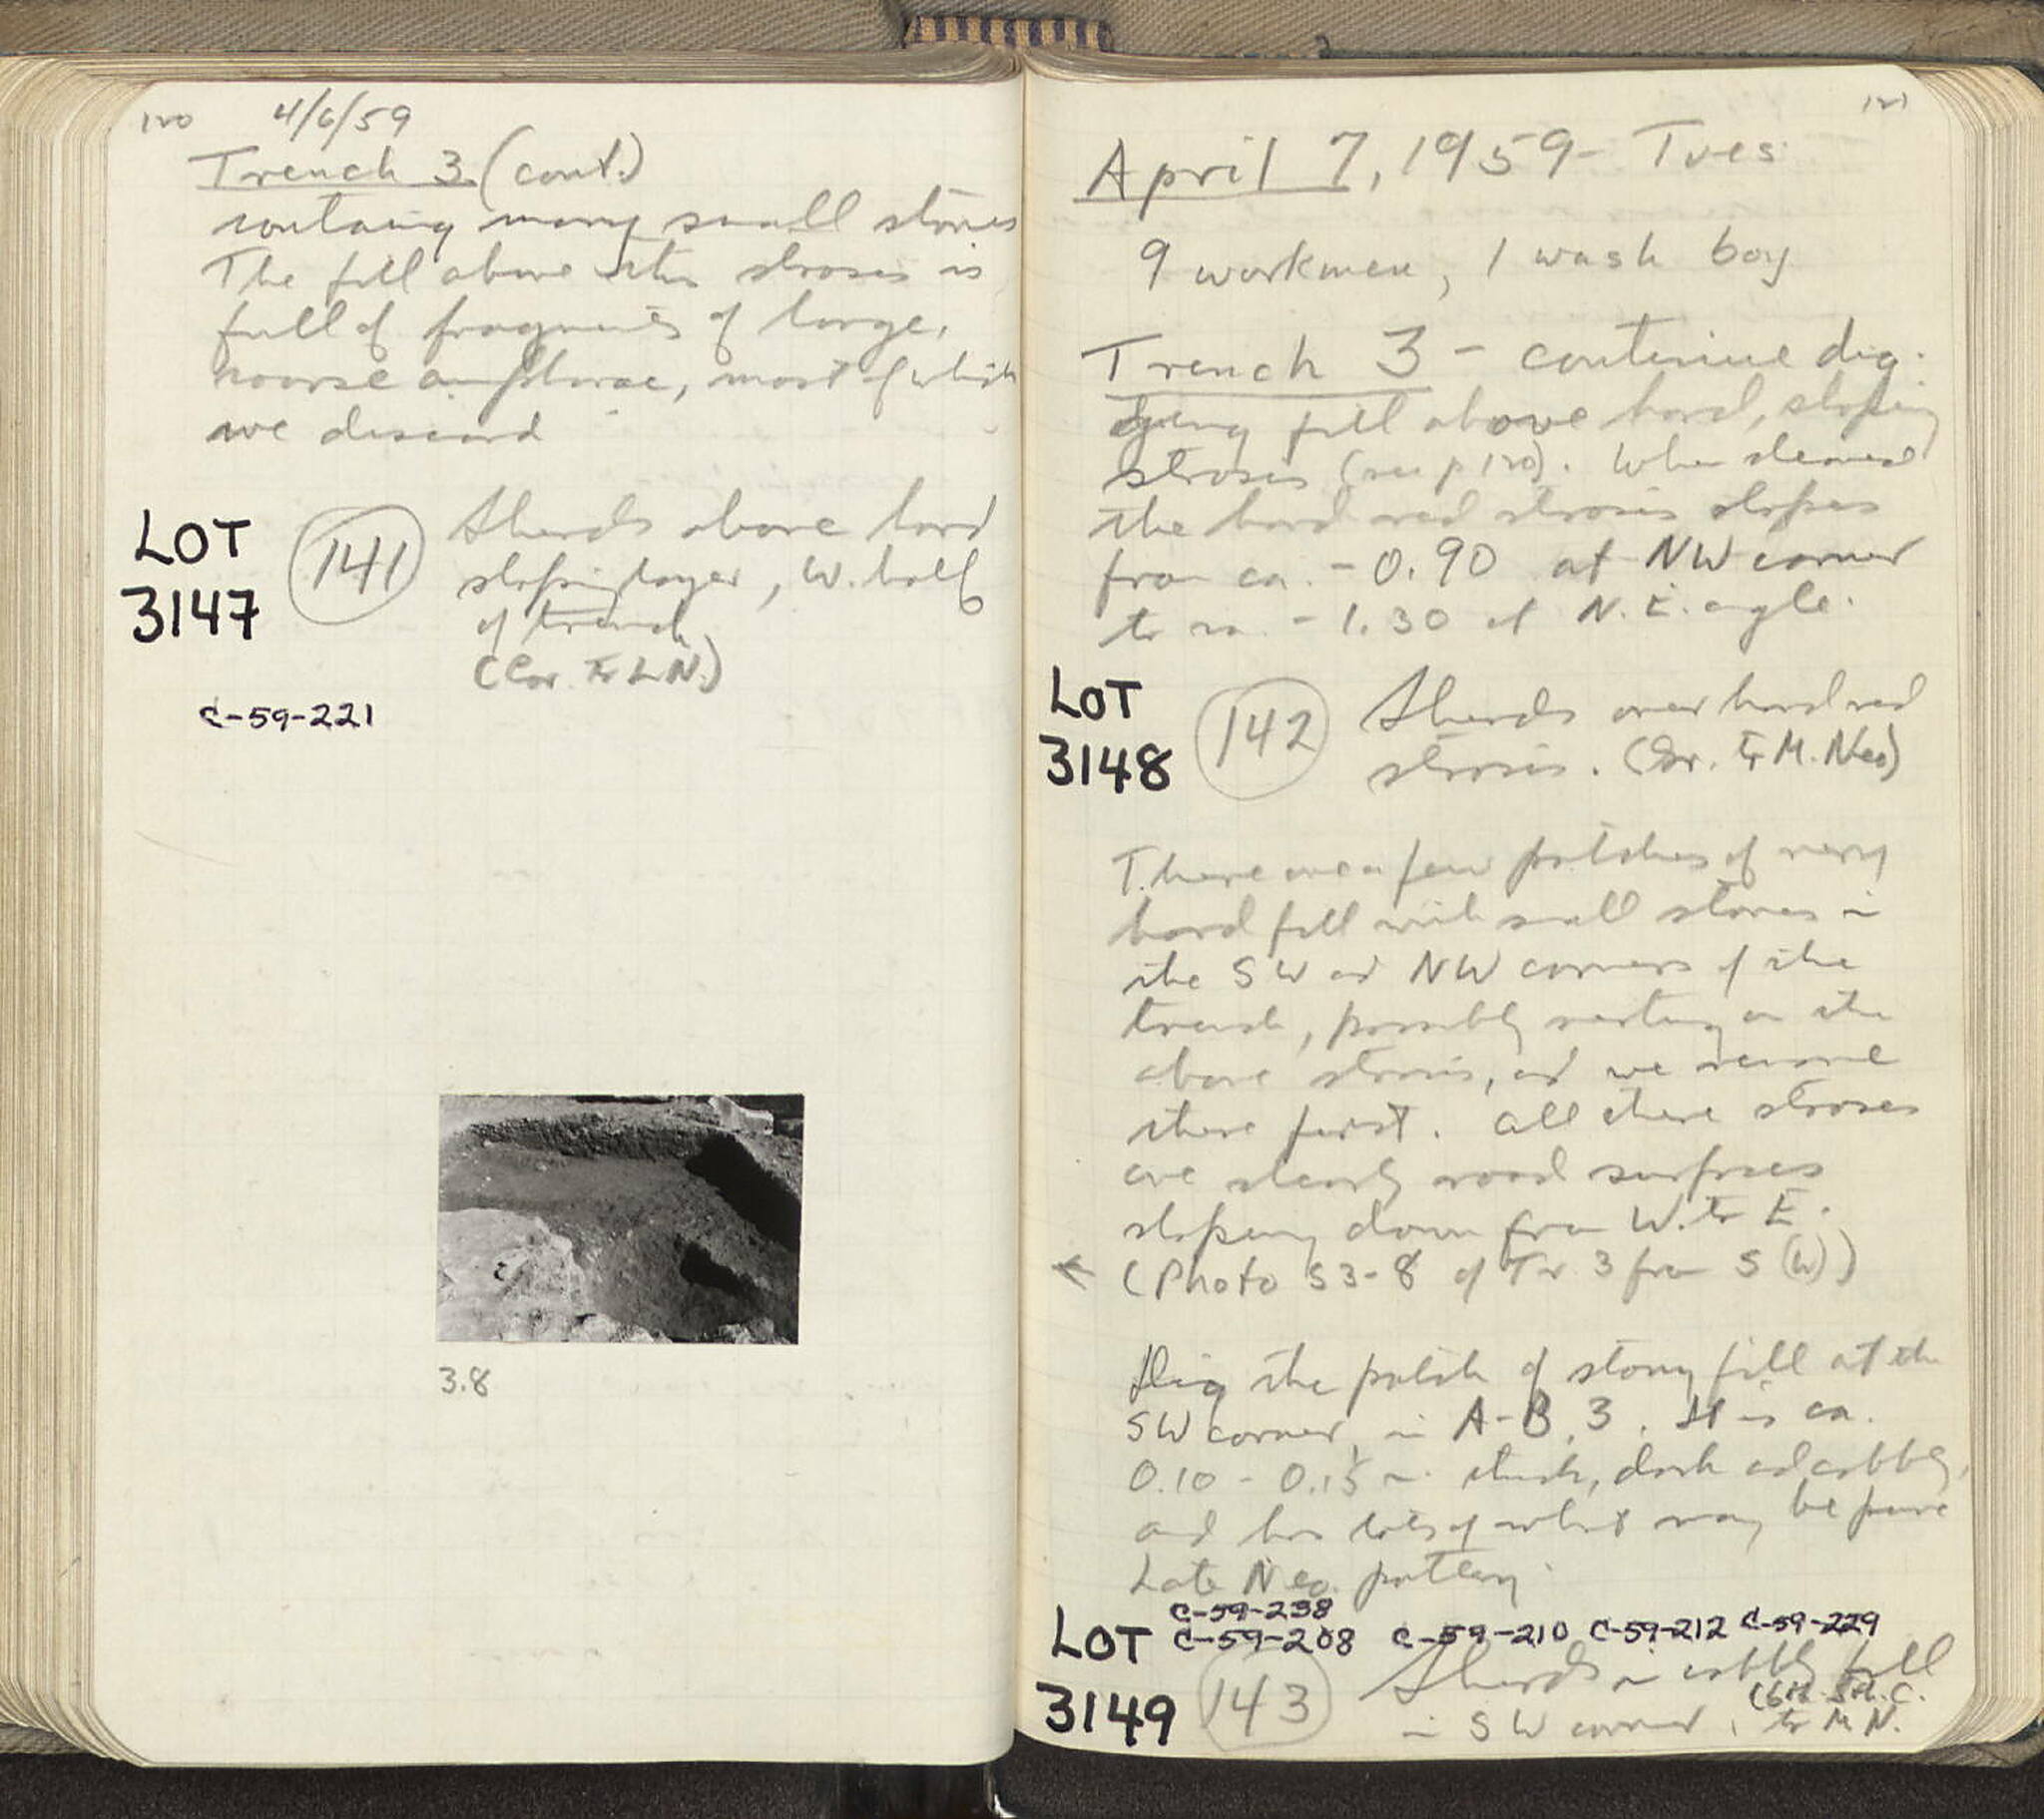 120 4/6/59
Trench 3 (cont.)
containg many small stones
The fill above this stroses is
full of fragments of large,
coarse amphorae, most of which
we discard
LOT 3147
141
Sherds above hard
sloping layer, W. half
of trench
(Cor. to L.N.)
C-59-221
3.8
121
April 7, 1959 - Tues
9 workmen, 1 wash boy
Trench 3 - continue dig-
ging fill above hard, sloping
strosis (see p 120). When cleaned
the hard red strosis slopes
from ca. -0.90 at NW corner
to ca. -1.30 at N.E. angle.
LOT 3148
142
Sherds over hard red
strosis. (Cor. to M. Neo)
There are a few patches of very
hard fill with small stones in
the SW and NW corners of the
trench, possibly resting on the
above strosis, and we remove
these first. All these stroses
are clearly road surfaces
sloping down from W. to E.
(Photo S3-8 of Tr 3 from S (W))
Dig the patch of stony fill at the
SW corner, in A-B, 3. It is ca.
0.10 - 0.15 m. thick, dark and cobbly,
and has lots of what may be pure
Late Neo. pottery
C-59-238
C-59-208 C-59-210 C-59-212 C-59-229
LOT 3149
143
Sherds in cobbly fill
in SW corner,
to M N.